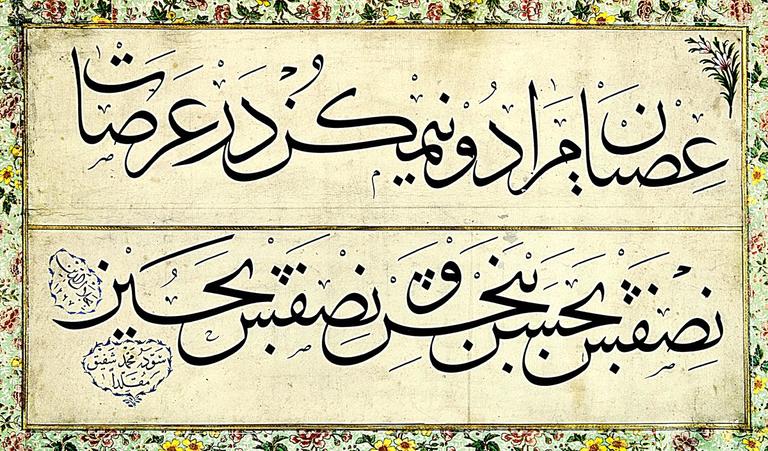 عصیان مرا دو نیم کن در عرصات
نصفش بحسن ببخش و نصفش بحسین
سوده محمد شفیق
مقلدا